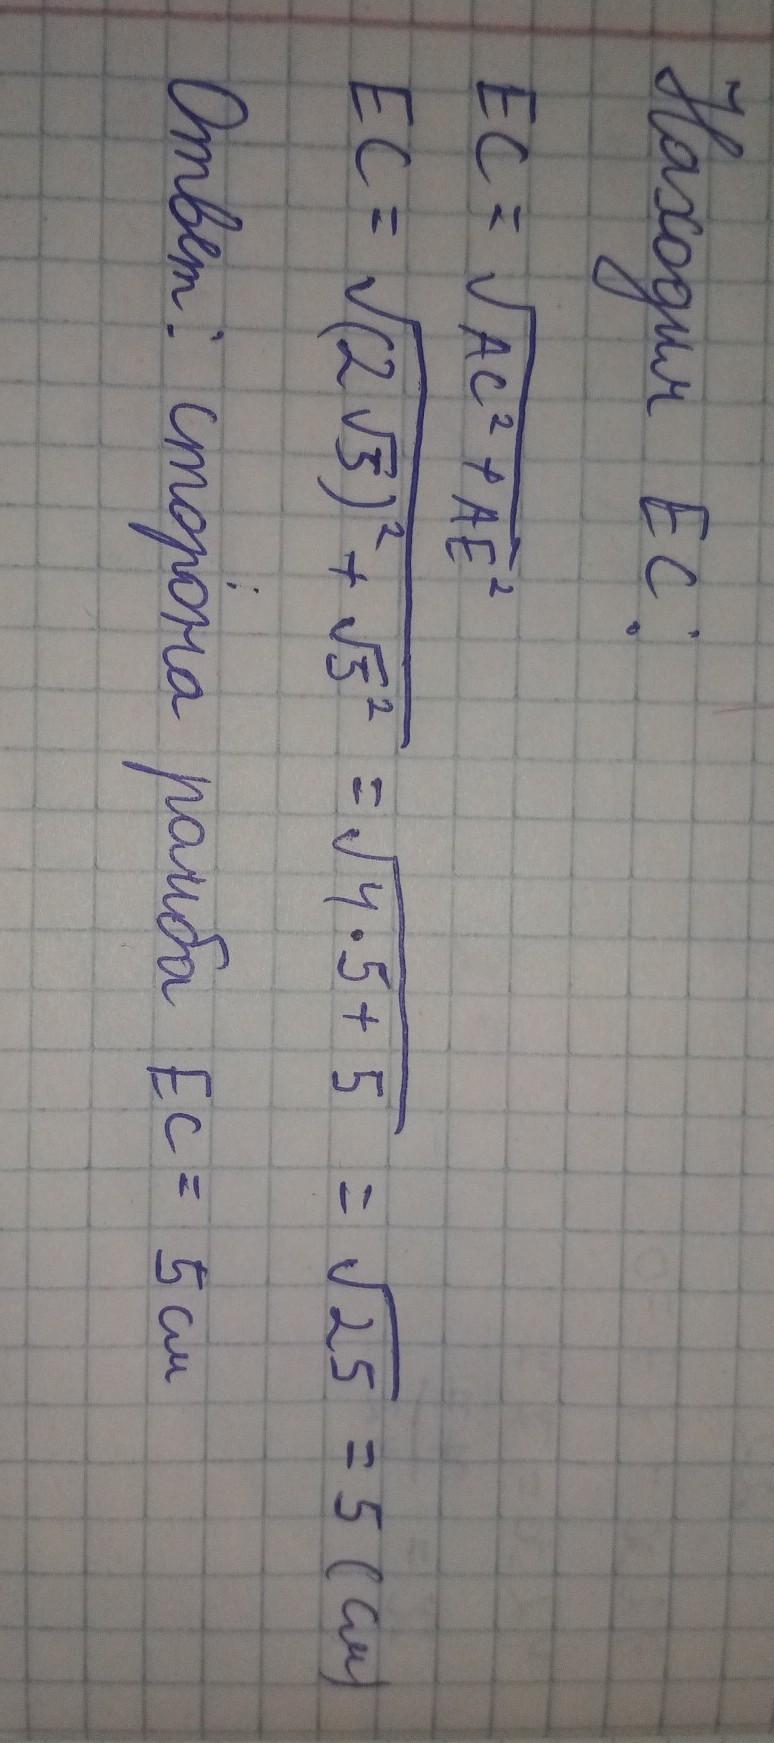 Находим EC:
EC = √AC² + AE²
EC = √(2√5)² + √5² = √4·5 + 5 = √25 = 5 (см)
Ответ: сторона ромба EC = 5 см